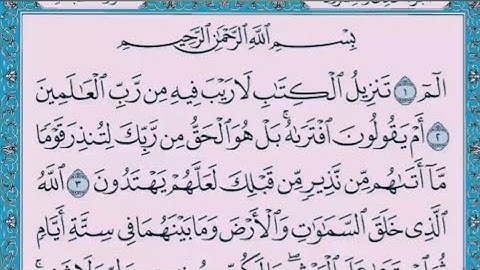 بِسْمِ اللَّهِ الرَّحْمَٰنِ الرَّحِيمِ
الٓمٓ ١ تَنزِيلُ الْكِتَابِ لَا رَيْبَ فِيهِ مِن رَّبِّ الْعَالَمِينَ
٢ أَمْ يَقُولُونَ افْتَرَىٰهُ ۚ بَلْ هُوَ الْحَقُّ مِن رَّبِّكَ لِتُنذِرَ قَوْمًا
مَّآ أَتَىٰهُم مِّن نَّذِيرٍ مِّن قَبْلِكَ لَعَلَّهُمْ يَهْتَدُونَ ٣ اللَّهُ
الَّذِى خَلَقَ السَّمَٰوَٰتِ وَالْأَرْضَ وَمَا بَيْنَهُمَا فِى سِتَّةِ أَيَّامٍ